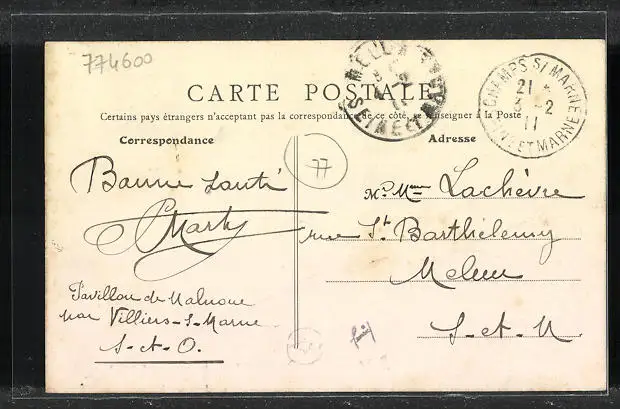 774600
CARTE POSTALE
Certains pays étrangers n'acceptent pas la correspondance de ce côté, se renseigner à la Poste
Correspondance
Adresse
MELUN
SEINE ET MARNE
CHAMPS S/ MARNE
21 *
3 - 2
11
SEINE ET MARNE
77
Bonne santé
Marty
Pavillon de Malnoue
par Villiers-s-Marne
S-et-O.
Mr Mme Lachèvre
rue St Barthélemy
Melun
S-et-M